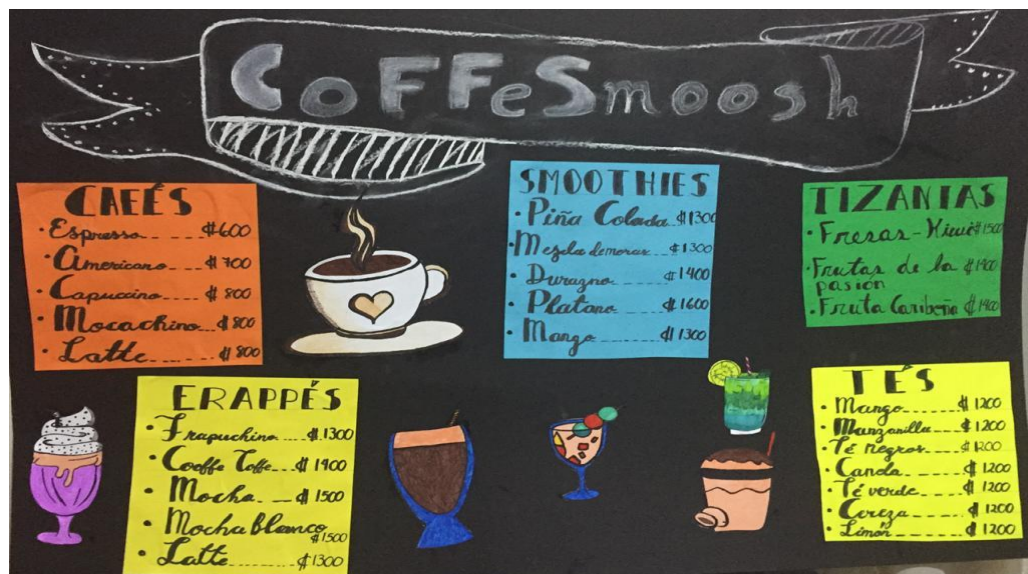 CoFFeSmoosh
CAFÉS
• Espresso ------ ₡600
• Americano --- ₡700
• Capuccino ---- ₡800
• Mocachino --- ₡800
• Latte ------- ₡800
SMOOTHIES
• Piña Colada -- ₡1300
• Mezcla demoras -- ₡1300
• Durazno ----- ₡1400
• Platano ---- ₡1600
• Mango ------- ₡1300
TIZANIAS
• Fresas-Kiwi ₡1500
• Frutas de la ₡1400
pasión
• Fruta Caribeña ₡1400
ERAPPÉS
• Frapuchino ---- ₡1300
• Cooffe Toffe --- ₡1400
• Mocha -- ₡1500
• Mocha blanco
₡1500
• Latte -------- ₡1300
TÉS
• Mango ------- ₡1200
• Manzanilla --- ₡1200
• Té negros ---- ₡1200
• Canela ------ ₡1200
• Té verde ---- ₡1200
• Cereza ---- ₡1200
• Limón ------ ₡1200